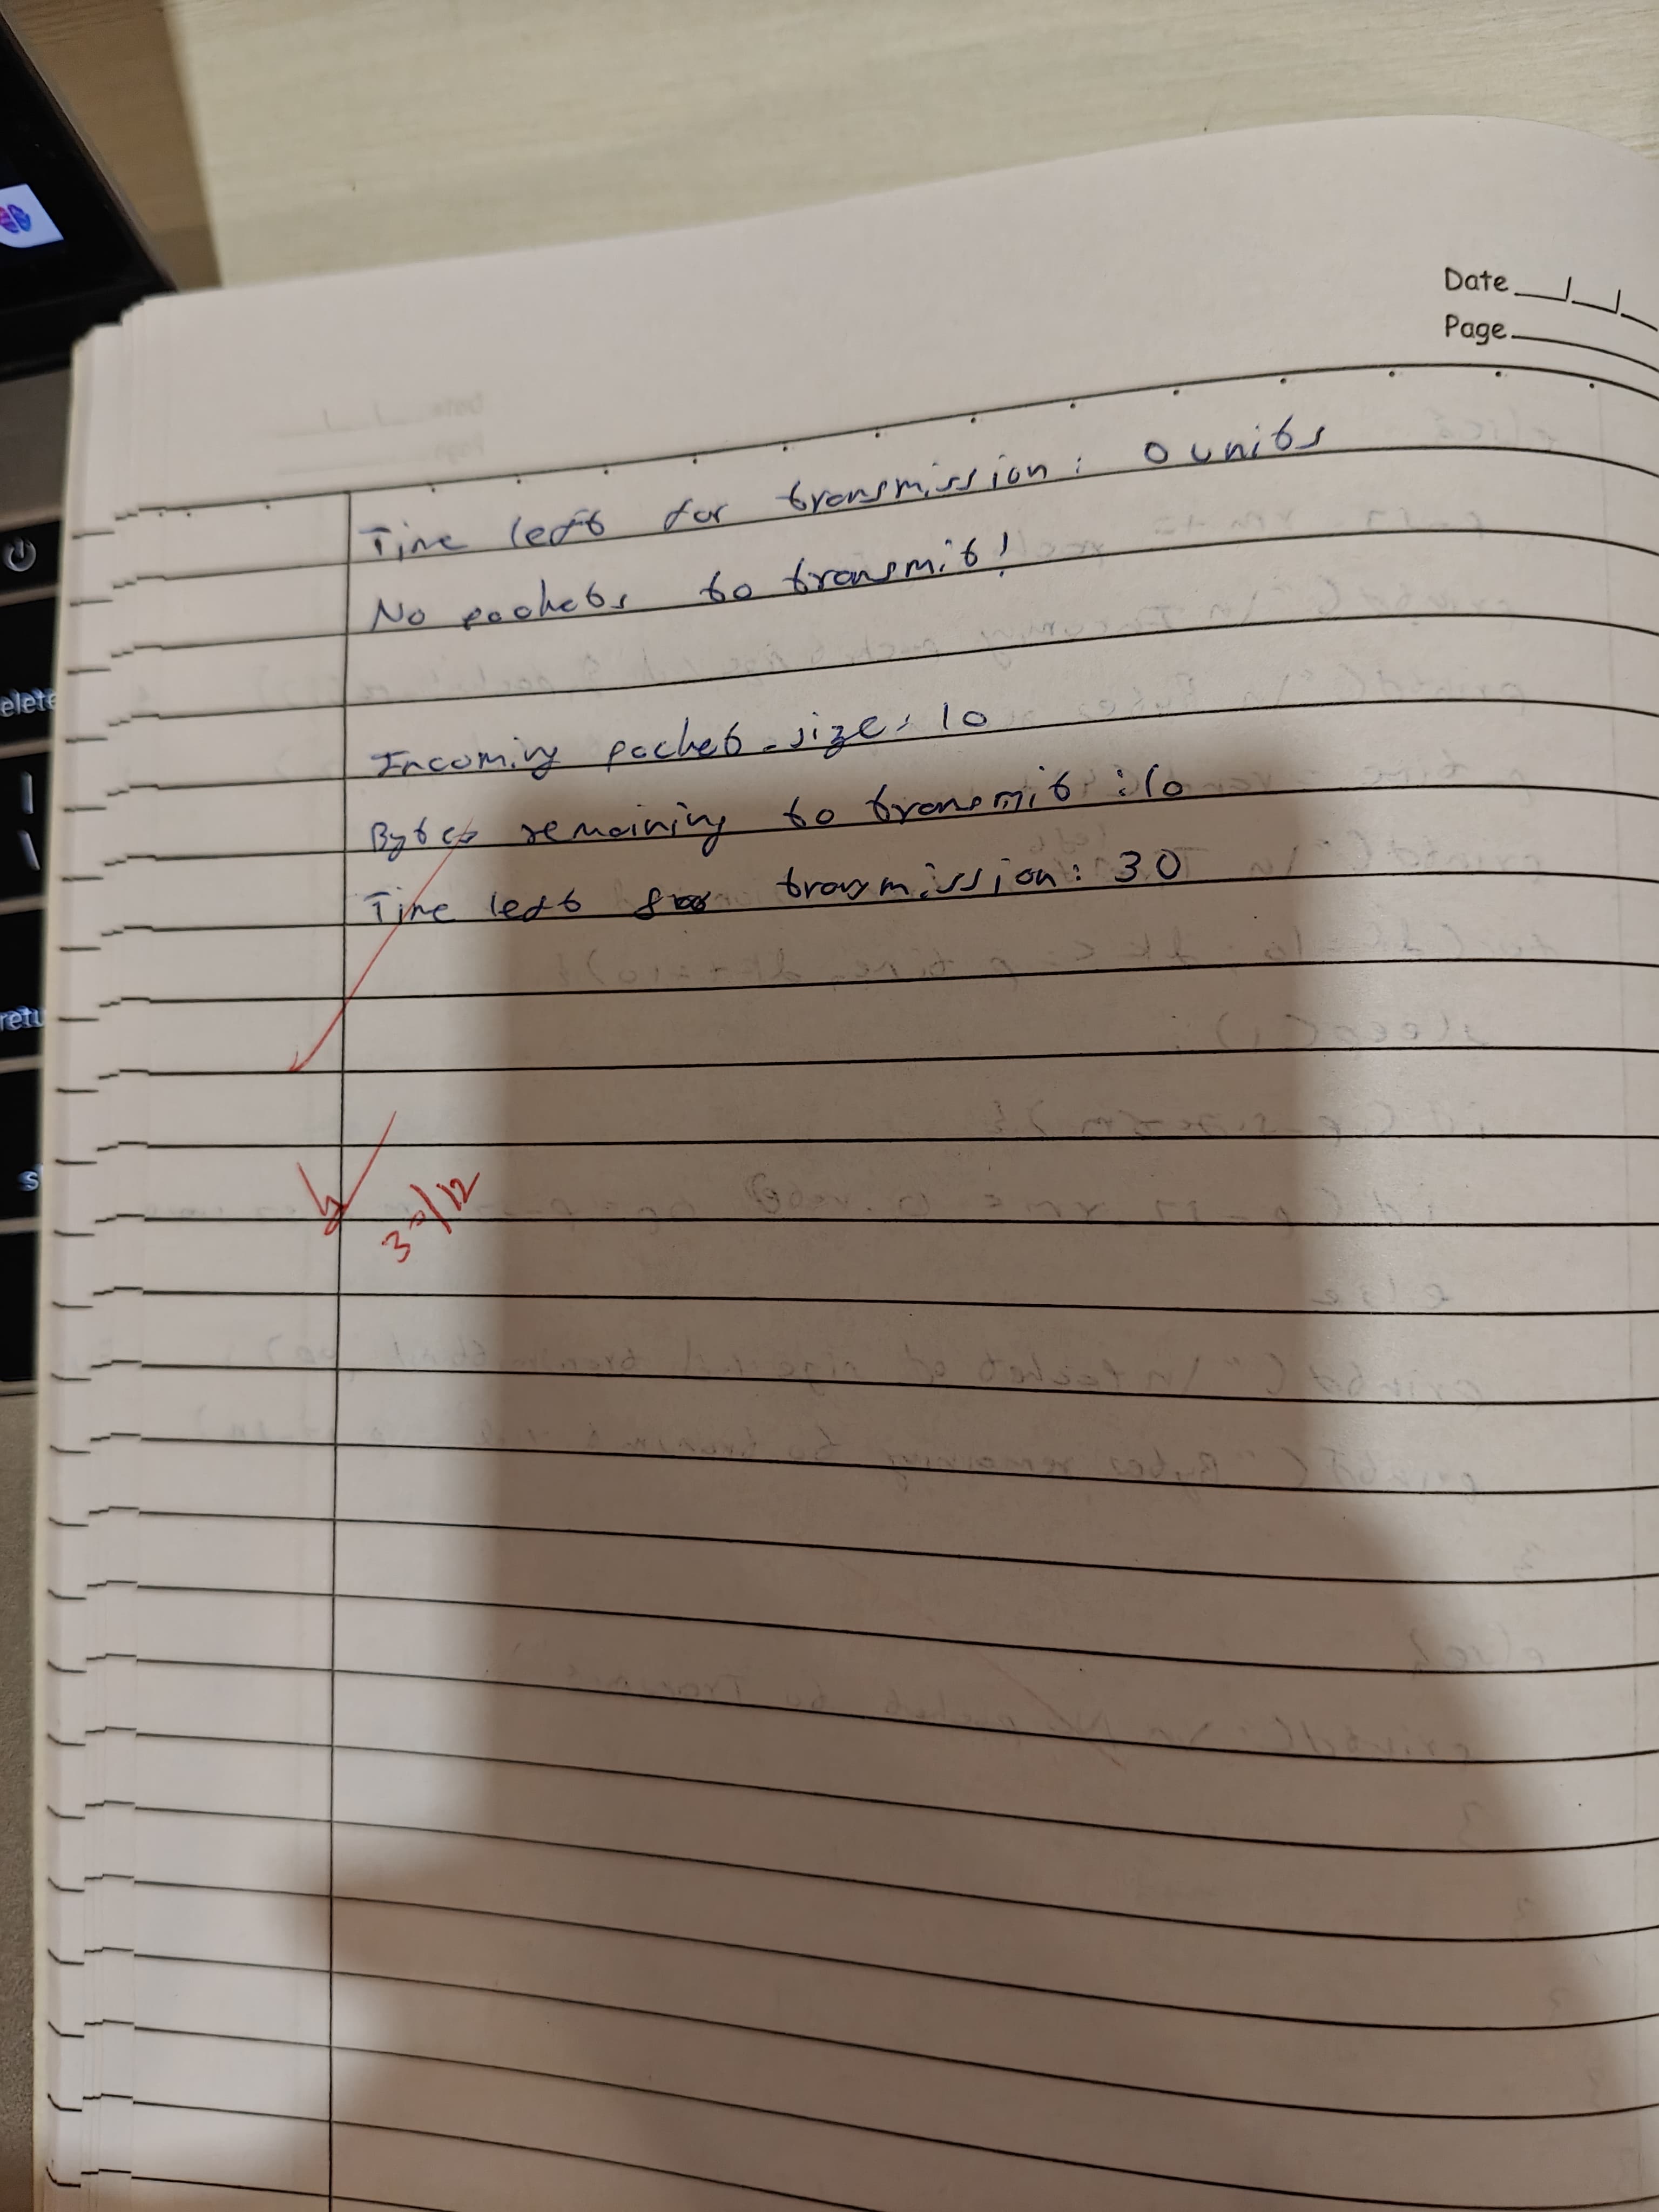 Date
Page
Time left for transmission: 0 units
No packets to transmit!
Incoming packet size: 10
Bytes remaining to transmit: 10
Time left for transmission: 30
30/12
elete
|
\
retu
s